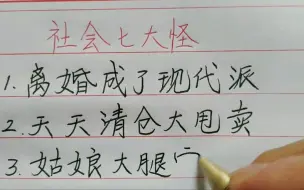 社会七大怪
1.离婚成了现代派
2.天天清仓大甩卖
3.姑娘大腿